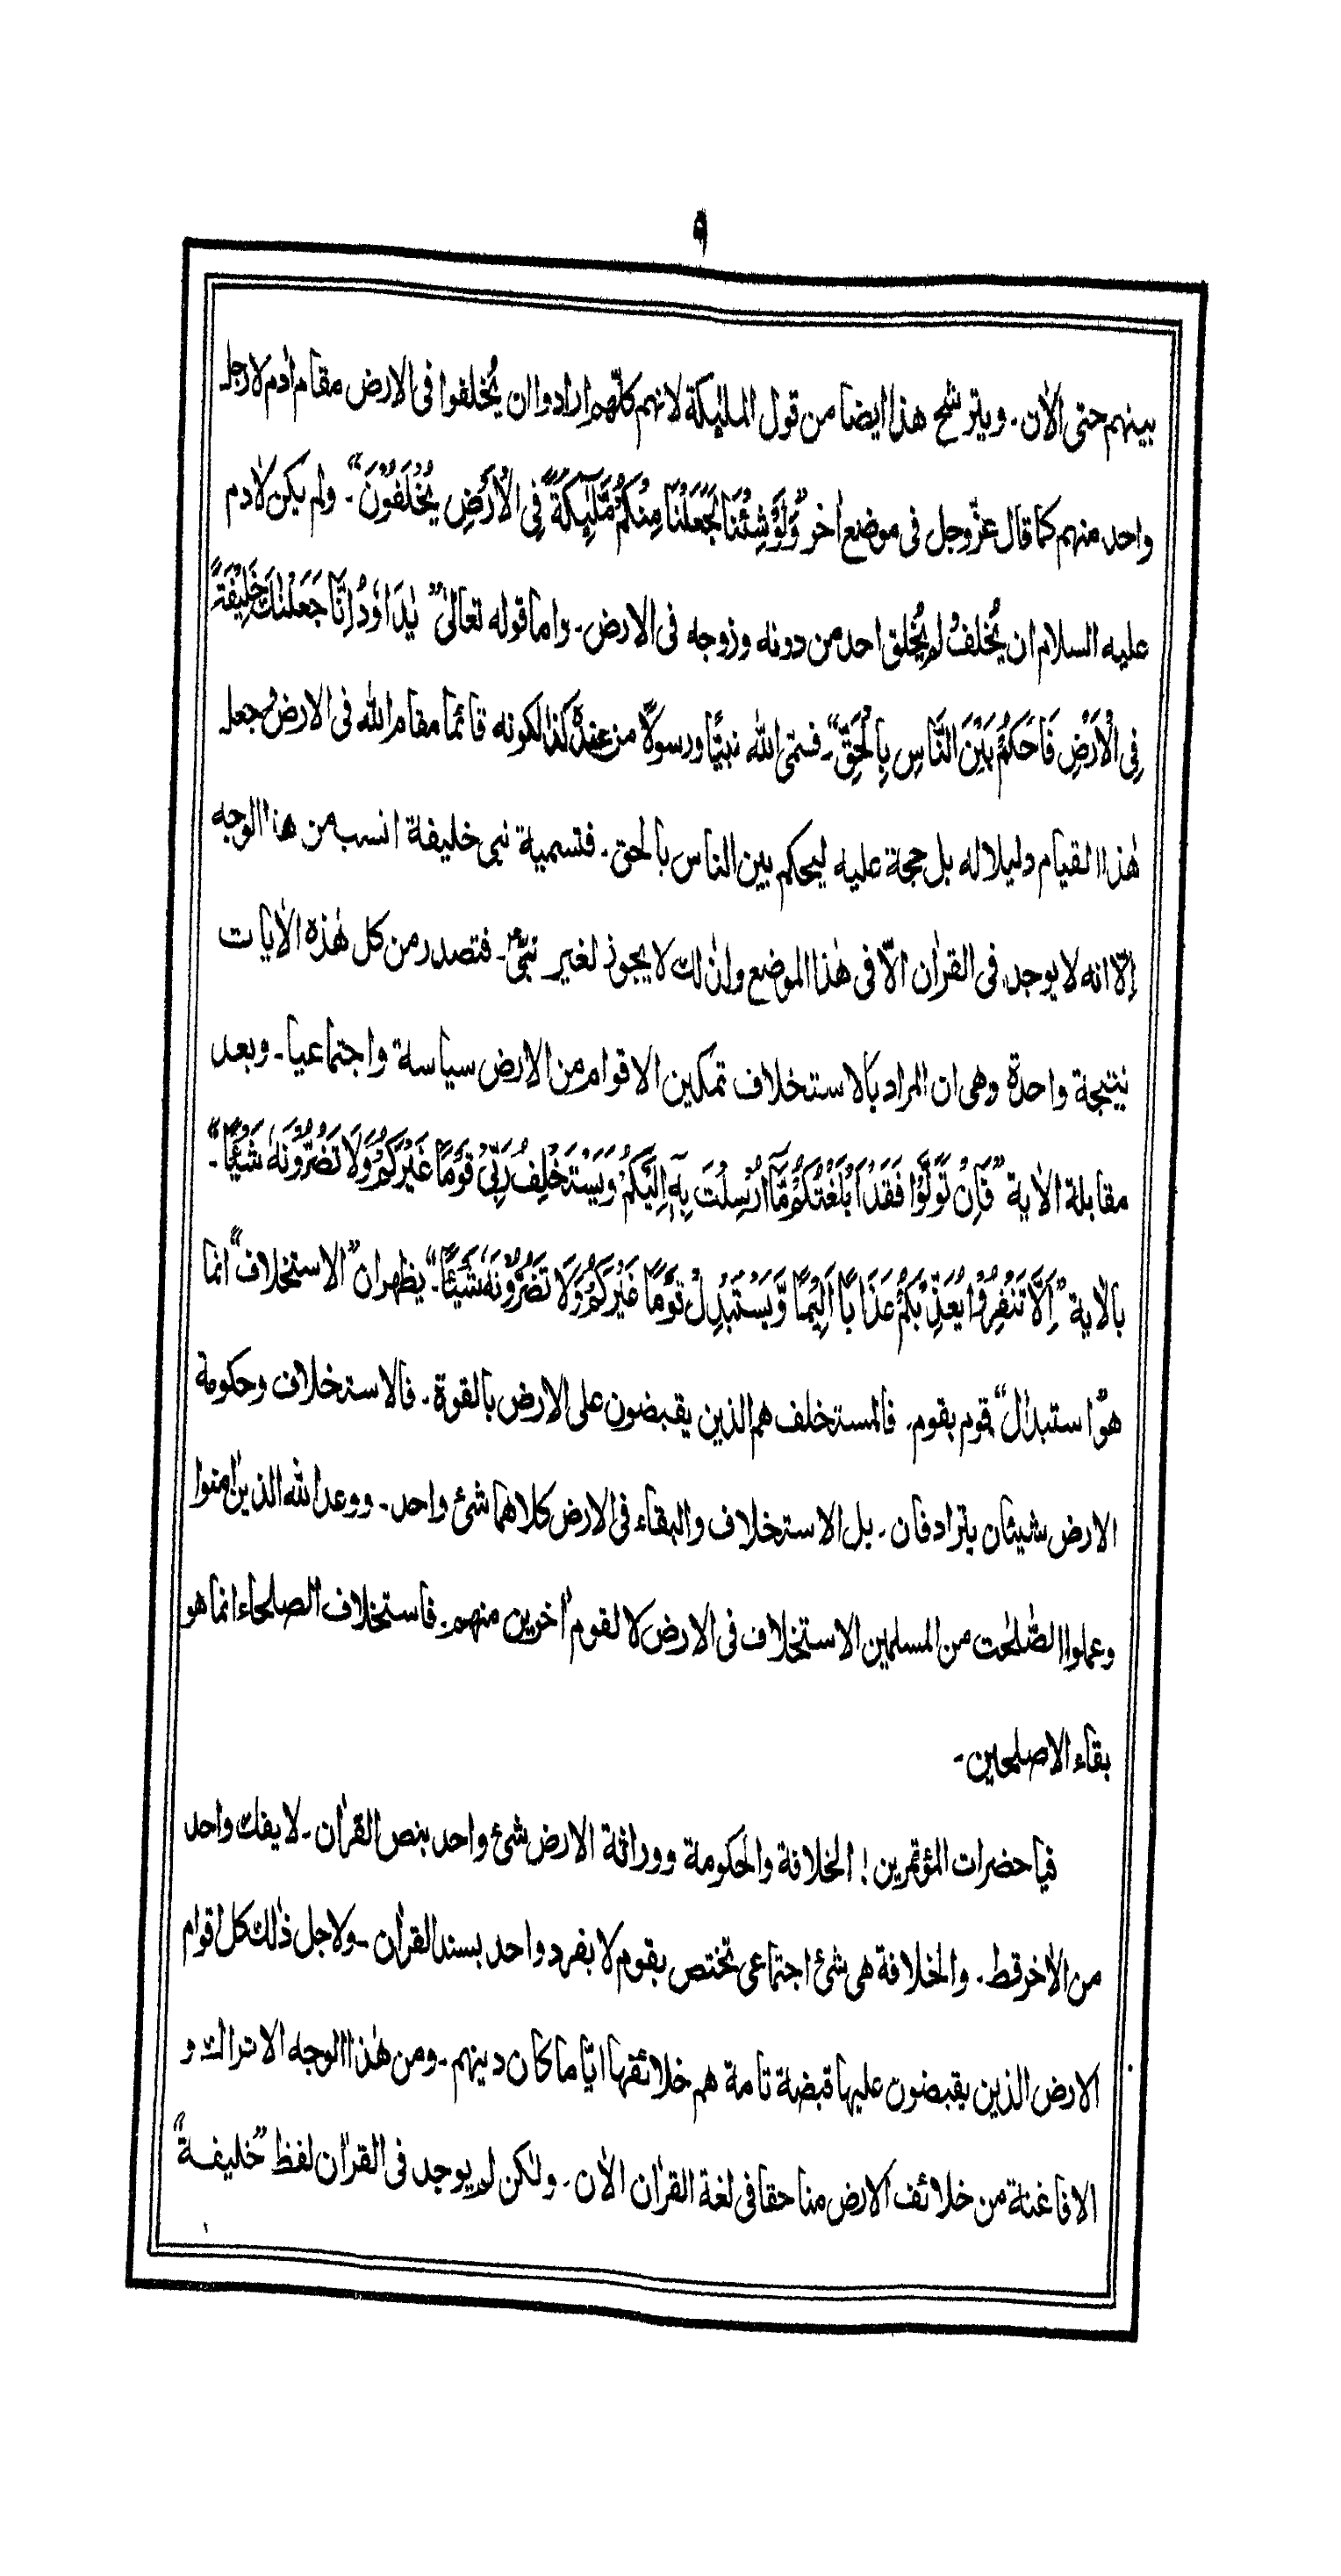 ٩
بينهم حتى الأن ـ ويترشح هذا ايضا من قول الملٰئكة لانهم كلّهم ارادوا ان يُخلفوا فى الارض مقام اٰدم لا رجل
واحد منهم كما قال عزّ وجل فى موضع اٰخر "وَلَوْ شِئْنَا لَجَعَلْنَا مِنْكُمْ مَّلٰٓئِكَةً فِى الْاَرْضِ يُخْلَفُوْنَ" ـ ولم يكن لاٰدم
عليه السلام ان يُخلف لم يُخلق احد من دونه وزوجه فى الارض ـ واما قوله تعالىٰ "يٰدَاوٗدُ اِنَّا جَعَلْنٰكَ خَلِيْفَةً
فِى الْاَرْضِ فَاحْكُمْ بَيْنَ النَّاسِ بِالْحَقِّ" ـ فسمّى الله نبيًّا ورسولًا من عنده كذا لكونه قائما مقام الله فى الارض وجعل
هٰذا القيام دليلا له بل حجة عليه ليحكم بين الناس بالحق ـ فتسمية نبى خليفة انسب من هذا الوجه
اِلّا انه لا يوجد فى القراٰن الّا فى هٰذا الموضع وذٰلك لا يجوز لغير نبىّ ـ فتصدر من كل هٰذه الاٰيات
نتيجة واحدة وهى ان المراد بالاستخلاف تمكين الاقوام من الارض سياسة واجتماعيا ـ وبعد
مقابلة الاٰية "فَاِنْ تَوَلَّوْا فَقَدْ اَبْلَغْتُكُمْ مَّا اُرْسِلْتُ بِهٖ اِلَيْكُمْ وَيَسْتَخْلِفُ رَبِّىْ قَوْمًا غَيْرَكُمْ وَلَا تَضُرُّوْنَهٗ شَيْئًا" ـ
بالاٰية "اِلَّا تَنْفِرُوْا يُعَذِّبْكُمْ عَذَابًا اَلِيْمًا وَّيَسْتَبْدِلْ قَوْمًا غَيْرَكُمْ وَلَا تَضُرُّوْنَهٗ شَيْئًا ـ" يظهر ان "الاستخلاف" انما
هو "استبدال" قوم بقوم ـ فالمستخلف هم الذين يقبضون على الارض بالقوة ـ فالاستخلاف وحكومة
الارض شيئان يترادفان ـ بل الاستخلاف والبقاء فى الارض كلاهما شئ واحد ـ ووعد الله الذين اٰمنوا
وعملوا الصّٰلحٰت من المسلمين الاستخلاف فى الارض لا لقوم اٰخرين منهم ـ فاستخلاف الصلحاء انما هو
بقاء الاصلحين ـ
فيا حضرات المؤتمرين! الخلافة والحكومة ووراثة الارض شئ واحد بنص القراٰن ـ لا يفك واحد
من الاٰخر قط ـ والخلافة هى شئ اجتماعى تختص بقوم لا بفرد واحد بسند القراٰن ـ ولاجل ذٰلك كل اقوام
الارض الذين يقبضون عليها قبضة تامة هم خلائفها ايّا ما كان دينهم ـ ومن هٰذا الوجه الاتراك و
الافاغنة من خلائف الارض منا حقا فى لغة القراٰن الاٰن ـ ولٰكن لم يوجد فى القراٰن لفظ "خليفة"